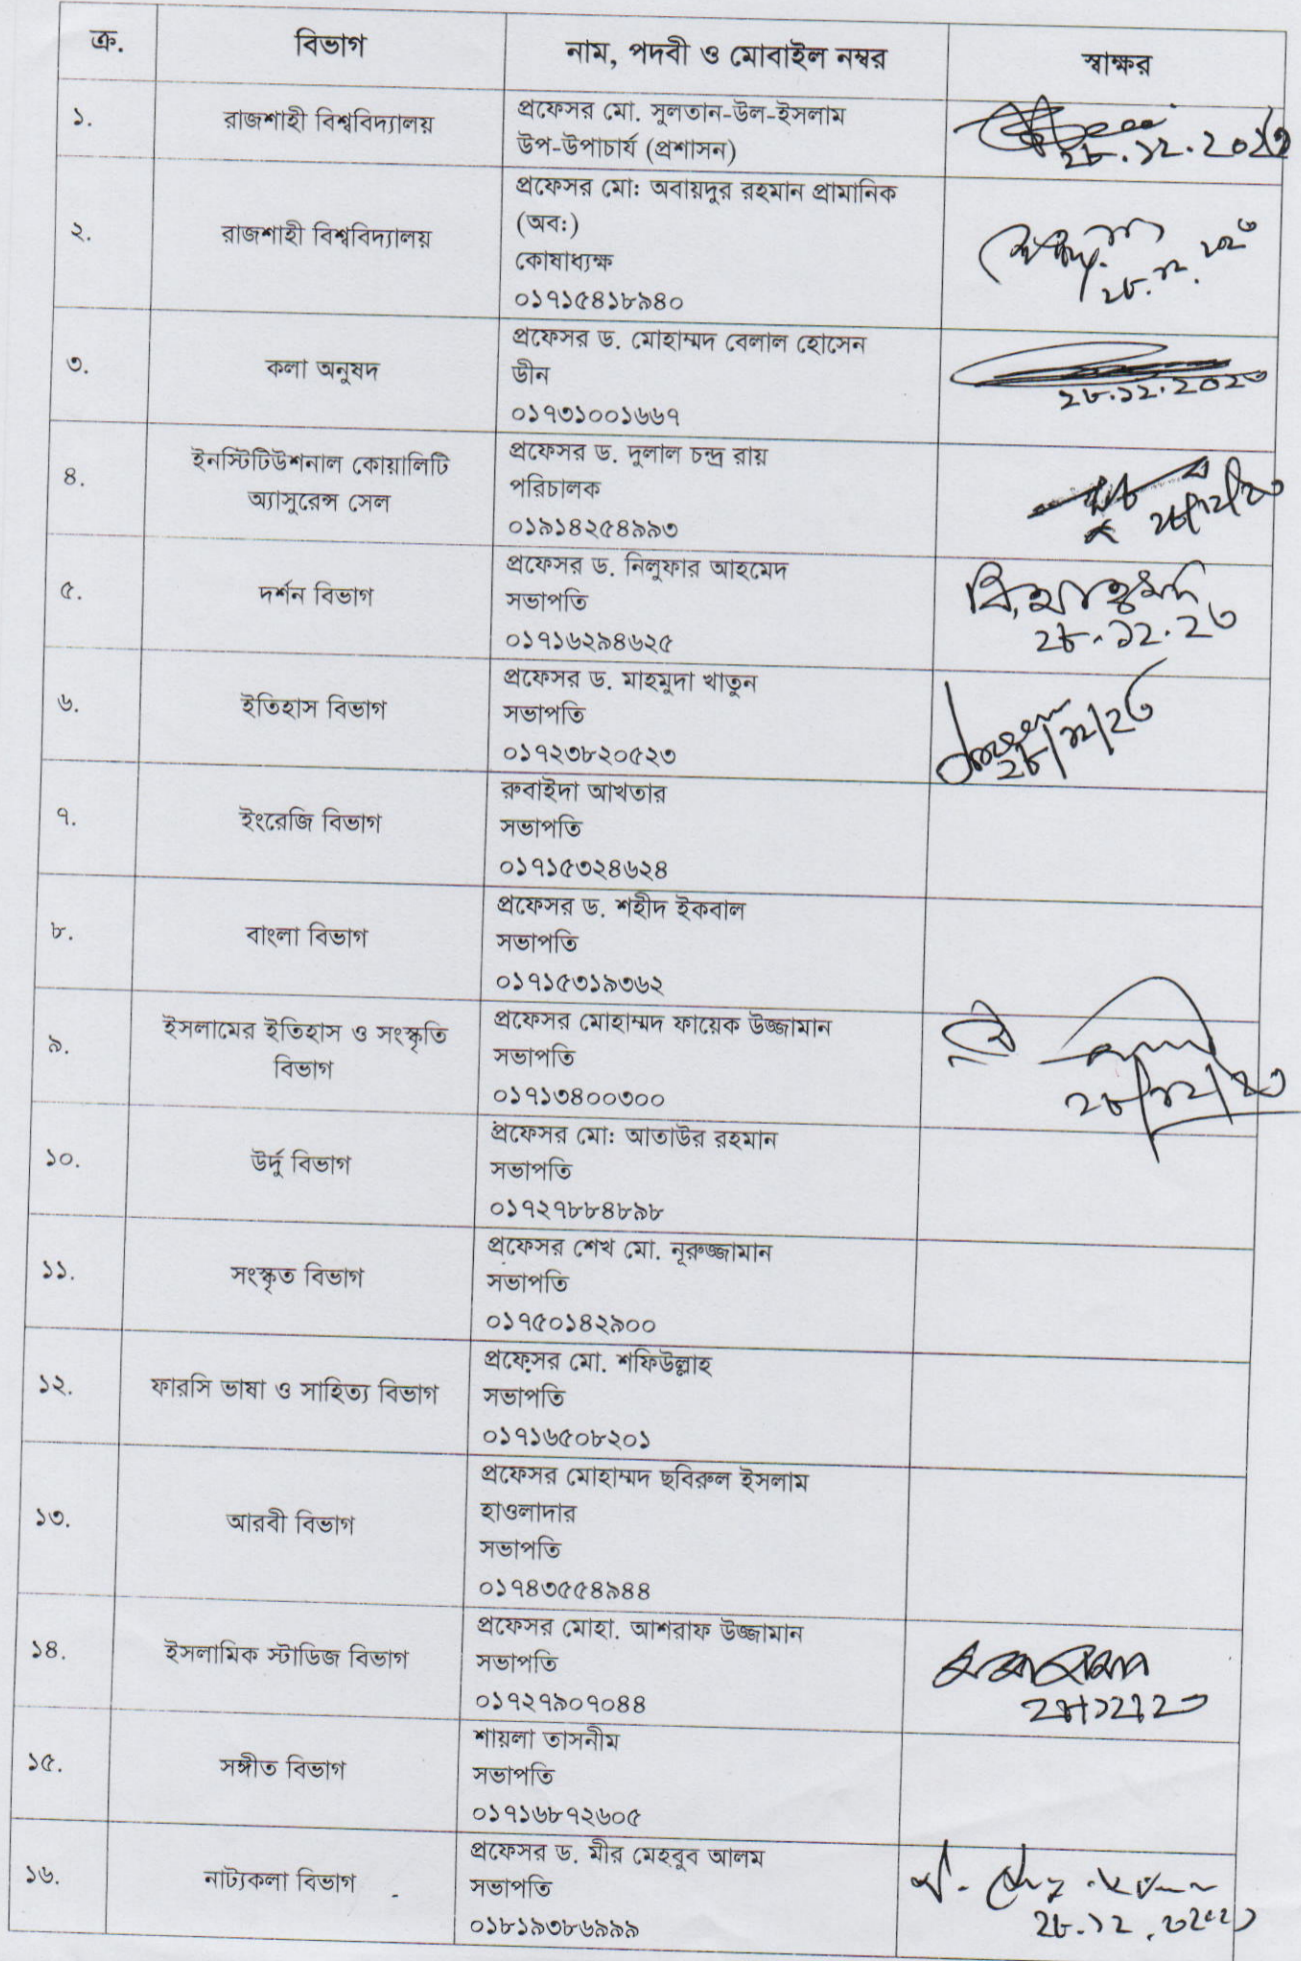 ক্র. বিভাগ নাম, পদবী ও মোবাইল নম্বর স্বাক্ষর
১. রাজশাহী বিশ্ববিদ্যালয় প্রফেসর মো. সুলতান-উল-ইসলাম
উপ-উপাচার্য (প্রশাসন)
২৮.১২.২০২৩
২. রাজশাহী বিশ্ববিদ্যালয় প্রফেসর মো: অবায়দুর রহমান প্রামানিক
(অব:)
কোষাধ্যক্ষ
০১৭১৫৪১৮৯৪০
২৮.১২.২০২৩
৩. কলা অনুষদ প্রফেসর ড. মোহাম্মদ বেলাল হোসেন
ডীন
০১৭৩১০০১৬৬৭
২৮.১২.২০২৩
৪. ইনস্টিটিউশনাল কোয়ালিটি
অ্যাসুরেন্স সেল
প্রফেসর ড. দুলাল চন্দ্র রায়
পরিচালক
০১৯১৪২৫৪৯৯৩
২৮/১২/২৩
৫. দর্শন বিভাগ প্রফেসর ড. নিলুফার আহমেদ
সভাপতি
০১৭১৬২৯৪৬২৫
২৮.১২.২৩
৬. ইতিহাস বিভাগ প্রফেসর ড. মাহমুদা খাতুন
সভাপতি
০১৭২৩৮২০৫২৩
২৮/১২/২৩
৭. ইংরেজি বিভাগ রুবাইদা আখতার
সভাপতি
০১৭১৫৩২৪৬২৪
৮. বাংলা বিভাগ প্রফেসর ড. শহীদ ইকবাল
সভাপতি
০১৭১৫৩১৯৩৬২
৯. ইসলামের ইতিহাস ও সংস্কৃতি
বিভাগ
প্রফেসর মোহাম্মদ ফায়েক উজ্জামান
সভাপতি
০১৭১৩৪০০৩০০
২৮/১২/২৩
১০. উর্দু বিভাগ প্রফেসর মো: আতাউর রহমান
সভাপতি
০১৭২৭৮৮৪৮৯৮
১১. সংস্কৃত বিভাগ প্রফেসর শেখ মো. নূরুজ্জামান
সভাপতি
০১৭৫০১৪২৯০০
১২. ফারসি ভাষা ও সাহিত্য বিভাগ প্রফেসর মো. শফিউল্লাহ
সভাপতি
০১৭১৬৫০৮২০১
১৩. আরবী বিভাগ প্রফেসর মোহাম্মদ ছবিরুল ইসলাম
হাওলাদার
সভাপতি
০১৭৪৩৫৫৪৯৪৪
১৪. ইসলামিক স্টাডিজ বিভাগ প্রফেসর মোহা. আশরাফ উজ্জামান
সভাপতি
০১৭২৭৯০৭০৪৪
১৫. সঙ্গীত বিভাগ শায়লা তাসনীম
সভাপতি
০১৭১৬৮৭২৬০৫
১৬. নাট্যকলা বিভাগ প্রফেসর ড. মীর মেহবুব আলম
সভাপতি
০১৮১৯৩৮৬৯৯৯